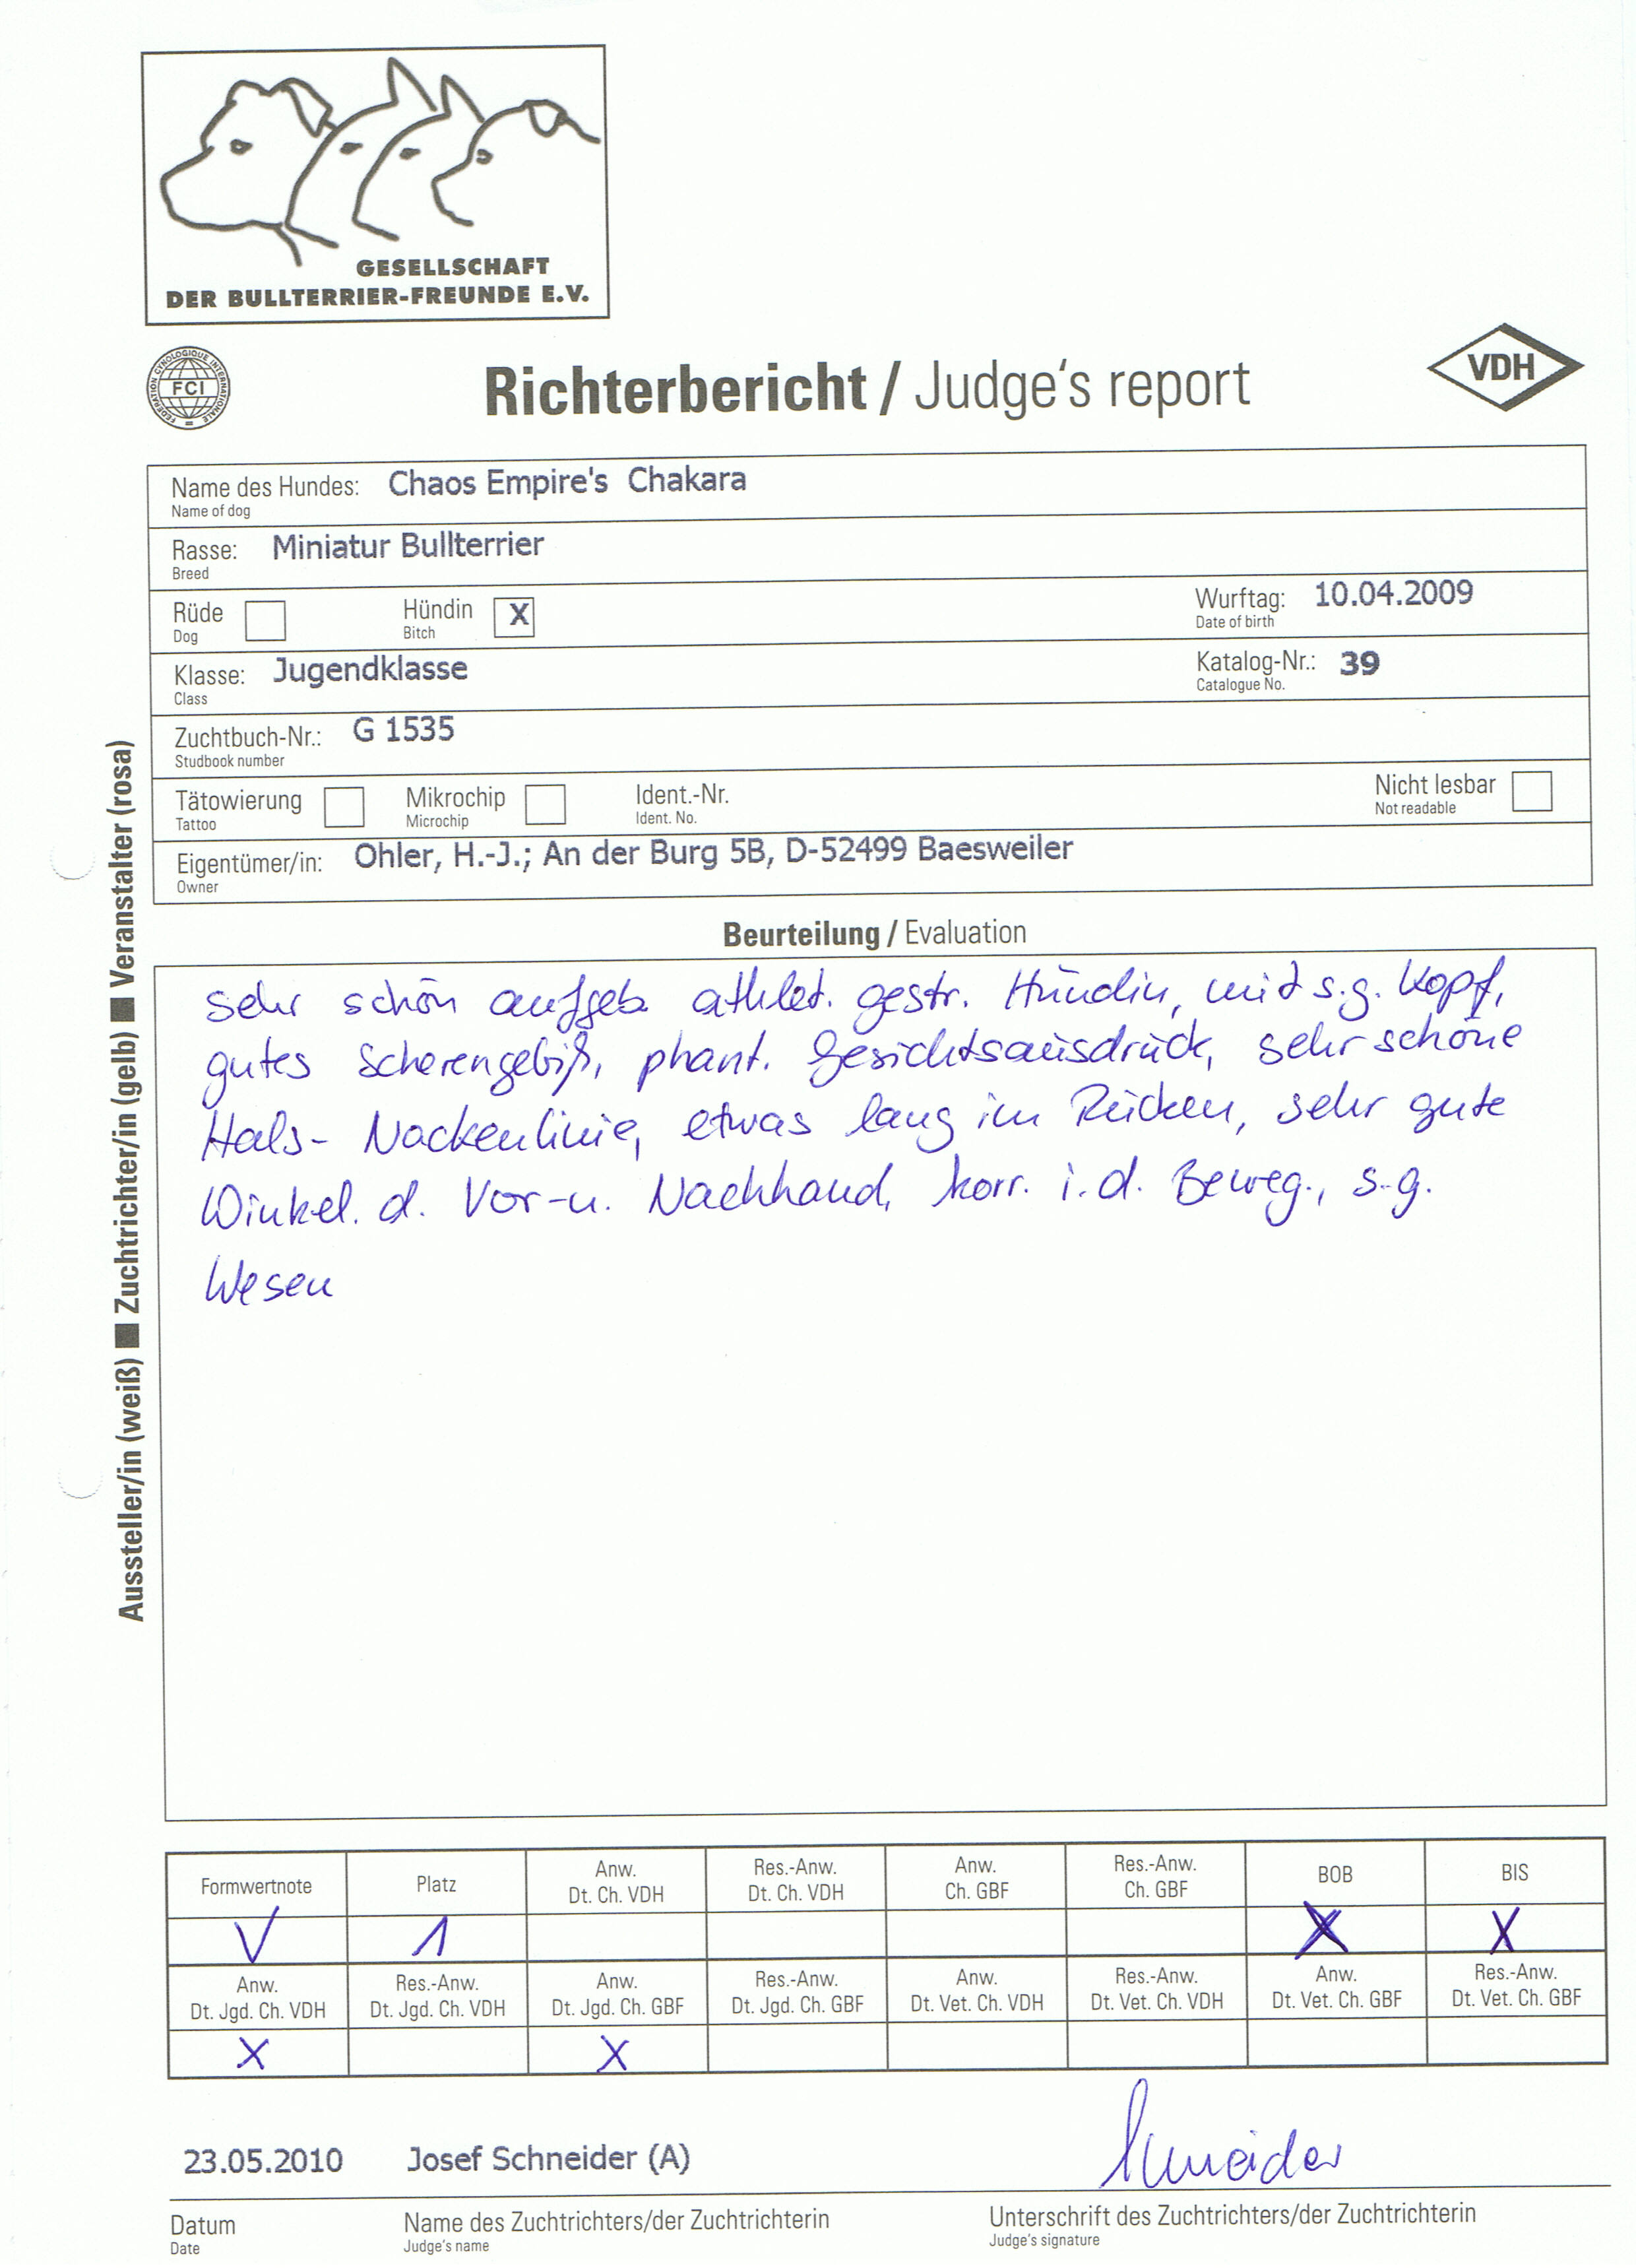 GESELLSCHAFT
DER BULLTERRIER-FREUNDE E.V.
FEDERATION CYNOLOGIQUE INTERNATIONALE
FCI
Richterbericht / Judge's report
VDH
Name des Hundes: Chaos Empire's Chakara
Name of dog
Rasse: Miniatur Bullterrier
Breed
Rüde Hündin X Wurftag: 10.04.2009
Dog Bitch Date of birth
Klasse: Jugendklasse Katalog-Nr.: 39
Class Catalogue No.
Zuchtbuch-Nr.: G 1535
Studbook number
Tätowierung Mikrochip Ident.-Nr. Nicht lesbar
Tattoo Microchip Ident. No. Not readable
Eigentümer/in: Ohler, H.-J.; An der Burg 5B, D-52499 Baesweiler
Owner
Aussteller/in (weiß) ■ Zuchtrichter/in (gelb) ■ Veranstalter (rosa)
Beurteilung / Evaluation
Sehr schön aufgeb. athlet. gestr. Hündin, mit s.g. Kopf,
gutes Scherengebiß, phant. Gesichtsausdruck, sehr schöne
Hals- Nackenlinie, etwas lang im Rücken, sehr gute
Winkel. d. Vor-u. Nachhand, korr. i.d. Beweg., s.g.
Wesen
Formwertnote Platz Anw. Dt. Ch. VDH Res.-Anw. Dt. Ch. VDH Anw. Ch. GBF Res.-Anw. Ch. GBF BOB BIS
V 1 X X
Anw. Dt. Jgd. Ch. VDH Res.-Anw. Dt. Jgd. Ch. VDH Anw. Dt. Jgd. Ch. GBF Res.-Anw. Dt. Jgd. Ch. GBF Anw. Dt. Vet. Ch. VDH Res.-Anw. Dt. Vet. Ch. VDH Anw. Dt. Vet. Ch. GBF Res.-Anw. Dt. Vet. Ch. GBF
X X
23.05.2010 Josef Schneider (A) Schneider
Datum Name des Zuchtrichters/der Zuchtrichterin Unterschrift des Zuchtrichters/der Zuchtrichterin
Date Judge's name Judge's signature